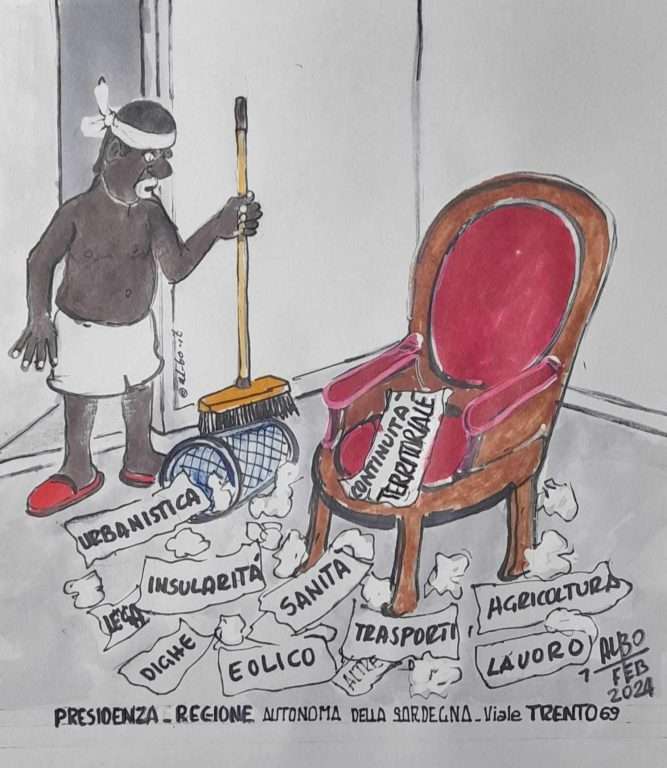 © al-bo.it
CONTINUITÀ
TERRITORIALE
URBANISTICA
INSULARITÀ
SANITÀ
AGRICOLTURA
LEGA
TRASPORTI
DIGHE
EOLICO
ALTRE
LAVORO
ALBO
1 FEB
2024
PRESIDENZA - REGIONE AUTONOMA DELLA SARDEGNA - Viale TRENTO 69